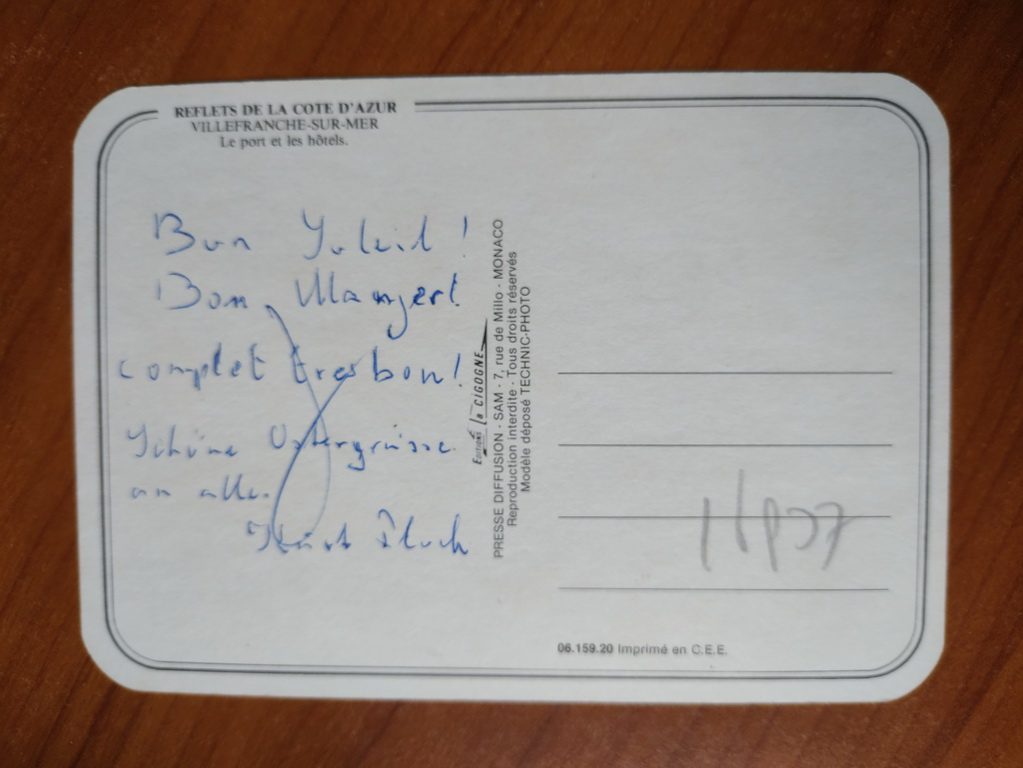 REFLETS DE LA COTE D'AZUR
VILLEFRANCHE-SUR-MER
Le port et les hôtels.
Bon Soleil!
Bon Manger!
complet tres bon!
Schöne Ostergrüsse
an alle.
Editions la CIGOGNE
PRESSE DIFFUSION - SAM - 7, rue de Millo - MONACO
Reproduction interdite - Tous droits réservés
Modèle déposé TECHNIC-PHOTO
06.159.20 Imprimé en C.E.E.